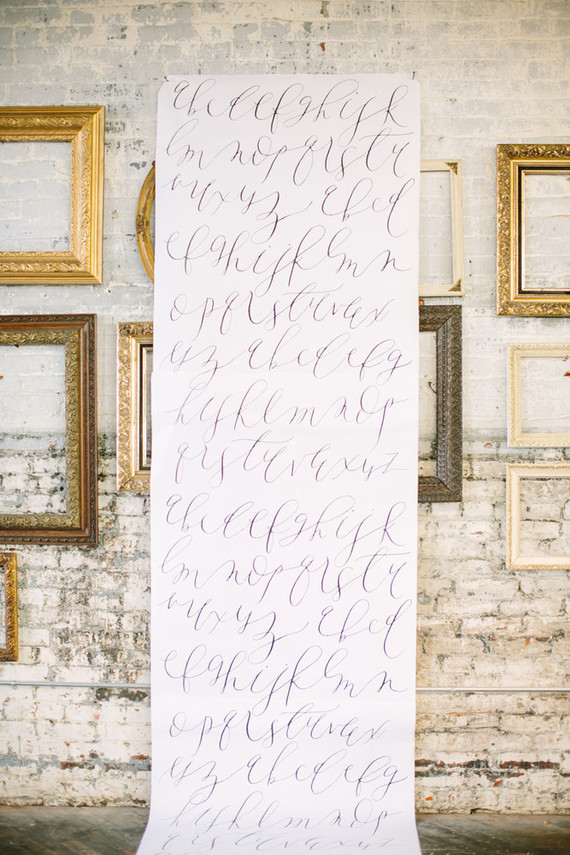 abcdefghijk
lmnopqrstu
vwxyz abcd
efghijklmn
opqrstuvwx
yz abcdefg
hijklmnop
qrstuvwxyz
abcdefghijk
lmnopqrstu
vwxyz abcd
efghijklmn
opqrstuvwx
yz abcdefg
hijklmnop
qrstuvwxyz